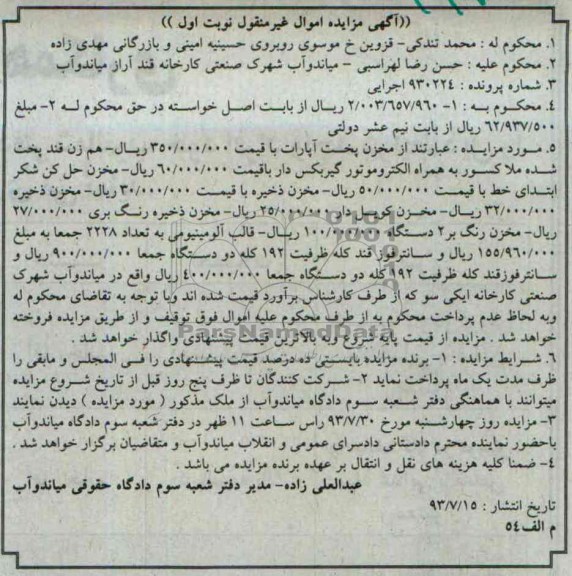 ((آگهی مزایده اموال غیرمنقول نوبت اول ))
۱. محکوم له : محمد تندکی- قزوین خ موسوی روبروی حسینیه امینی و بازرگانی مهدی زاده
۲. محکوم علیه : حسن رضا لهراسبی - میاندوآب شهرک صنعتی کارخانه قند آراز میاندوآب
۳. شماره پرونده : ۹۳۰۲۲۴ اجرایی
۴. محکوم به : ۱- ۲/۰۰۳/۶۵۷/۹۶۰ ریال از بابت اصل خواسته در حق محکوم له ۲- مبلغ
۶۲/۹۳۷/۵۰۰ ریال از بابت نیم عشر دولتی
۵. مورد مزایده : عبارتند از مخزن پخت آپارات با قیمت ۳۵۰/۰۰۰/۰۰۰ ریال- هم زن قند پخت
شده ملا کسور به همراه الکتروموتور گیربکس دار باقیمت ۶۰/۰۰۰/۰۰۰ ریال- مخزن حل کن شکر
ابتدای خط با قیمت ۵۰/۰۰۰/۰۰۰ ریال- مخزن ذخیره با قیمت ۳۰/۰۰۰/۰۰۰ ریال- مخزن ذخیره
۳۲/۰۰۰/۰۰۰ ریال- مخزن کویل دار ۲۵/۰۰۰/۰۰۰ ریال- مخزن ذخیره رنگ بری ۲۷/۰۰۰/۰۰۰
ریال- مخزن رنگ بر ۲ دستگاه ۱۰۰/۰۰۰/۰۰۰ ریال- قالب آلومینیومی به تعداد ۲۲۲۸ جمعا به مبلغ
۱۵۵/۹۶۰/۰۰۰ ریال و سانترفوژ قند کله ظرفیت ۱۹۲ کله دو دستگاه جمعا ۹۰۰/۰۰۰/۰۰۰ ریال و
سانترفوژقند کله ظرفیت ۱۹۲ کله دو دستگاه جمعا ۴۰۰/۰۰۰/۰۰۰ ریال واقع در میاندوآب شهرک
صنعتی کارخانه ایکی سو که از طرف کارشناس برآورد قیمت شده اند وبا توجه به تقاضای محکوم له
وبه لحاظ عدم پرداخت محکوم به از طرف محکوم علیه اموال فوق توقیف و از طریق مزایده فروخته
خواهد شد . مزایده از قیمت پایه شروع وبه بالاترین قیمت پیشنهادی واگذار خواهد شد .
۶. شرایط مزایده : ۱- برنده مزایده بایستی ده درصد قیمت پیشنهادی را فی المجلس و مابقی را
ظرف مدت یک ماه پرداخت نماید ۲- شرکت کنندگان تا ظرف پنج روز قبل از تاریخ شروع مزایده
میتوانند با هماهنگی دفتر شعبه سوم دادگاه میاندوآب از ملک مذکور ( مورد مزایده ) دیدن نمایند
۳- مزایده روز چهارشنبه مورخ ۹۳/۷/۳۰ راس ساعت ۱۱ ظهر در دفتر شعبه سوم دادگاه میاندوآب
باحضور نماینده محترم دادستانی دادسرای عمومی و انقلاب میاندوآب و متقاضیان برگزار خواهد شد .
۴- ضمنا کلیه هزینه های نقل و انتقال بر عهده برنده مزایده می باشد .
عبدالعلی زاده- مدیر دفتر شعبه سوم دادگاه حقوقی میاندوآب
تاریخ انتشار : ۹۳/۷/۱۵
م الف۵۴
ParsNamadData